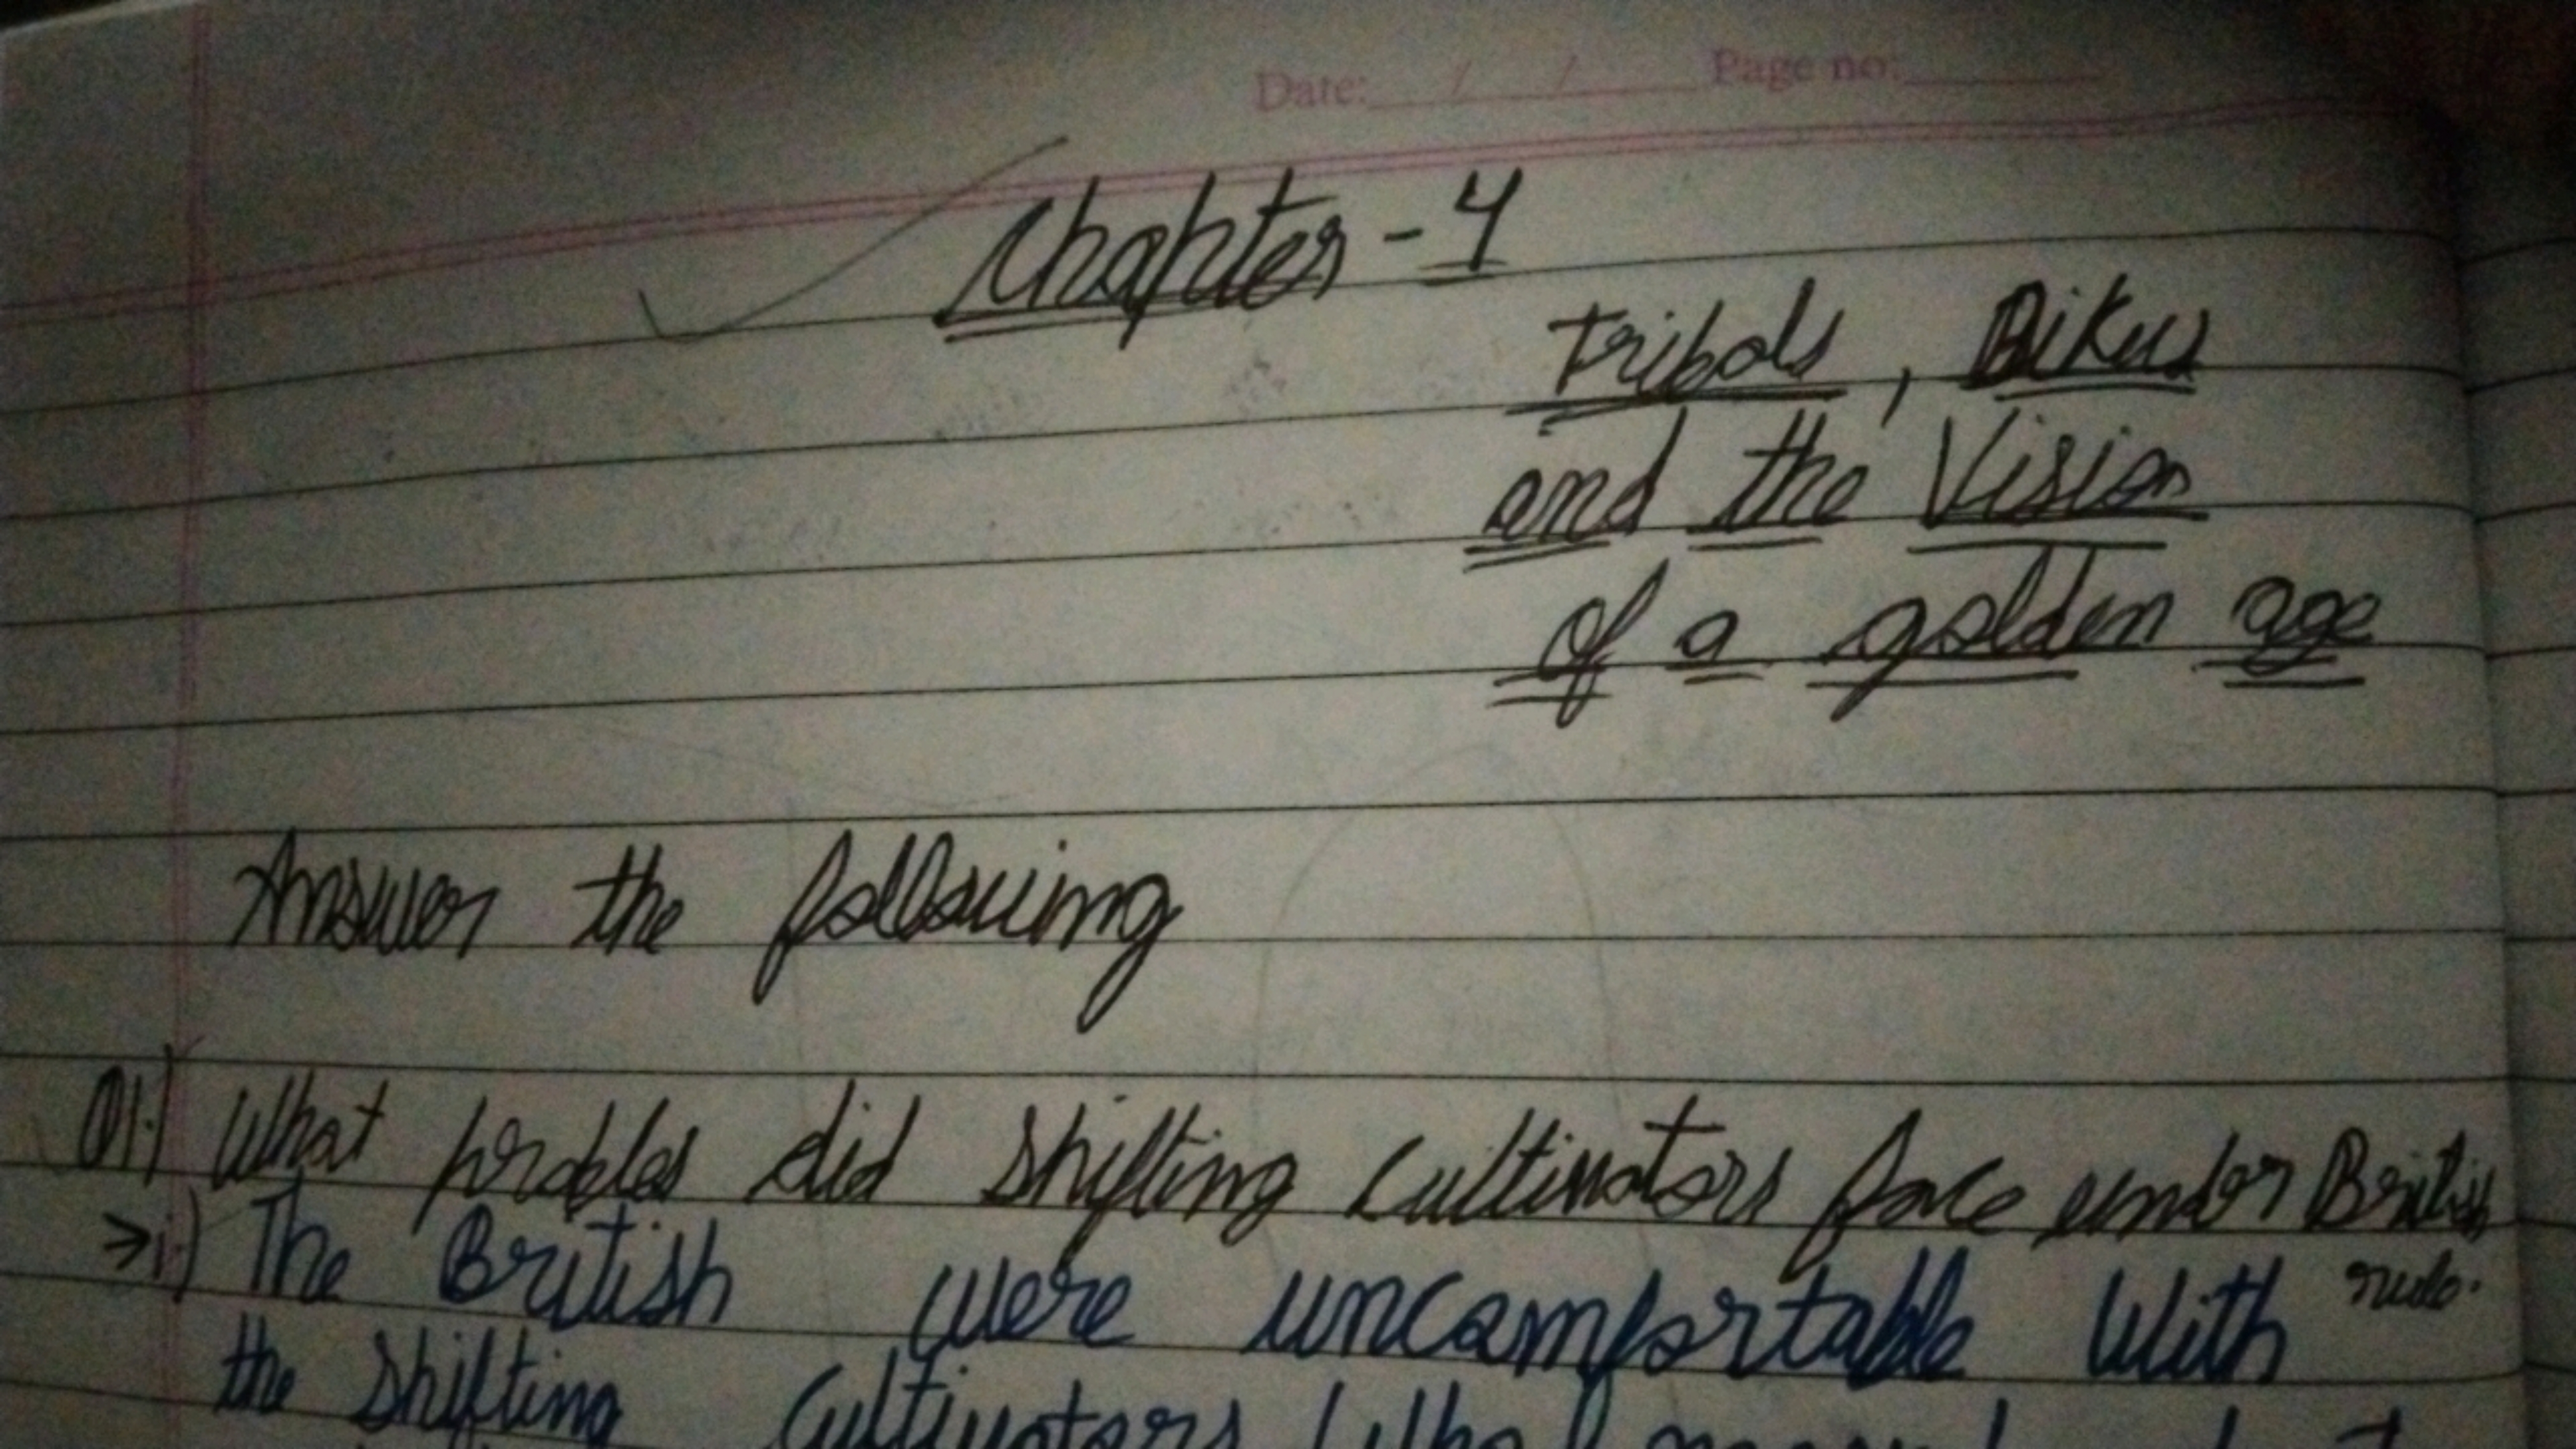 Date: / / Page no:
Chapter - 4
Tribals, Dikus
and the Vision
of a golden age
Answer the following
Q1.) What probles did shifting cultivators face under British
rule.
→ i.) The British were uncomfortable with
the shifting cultivators who